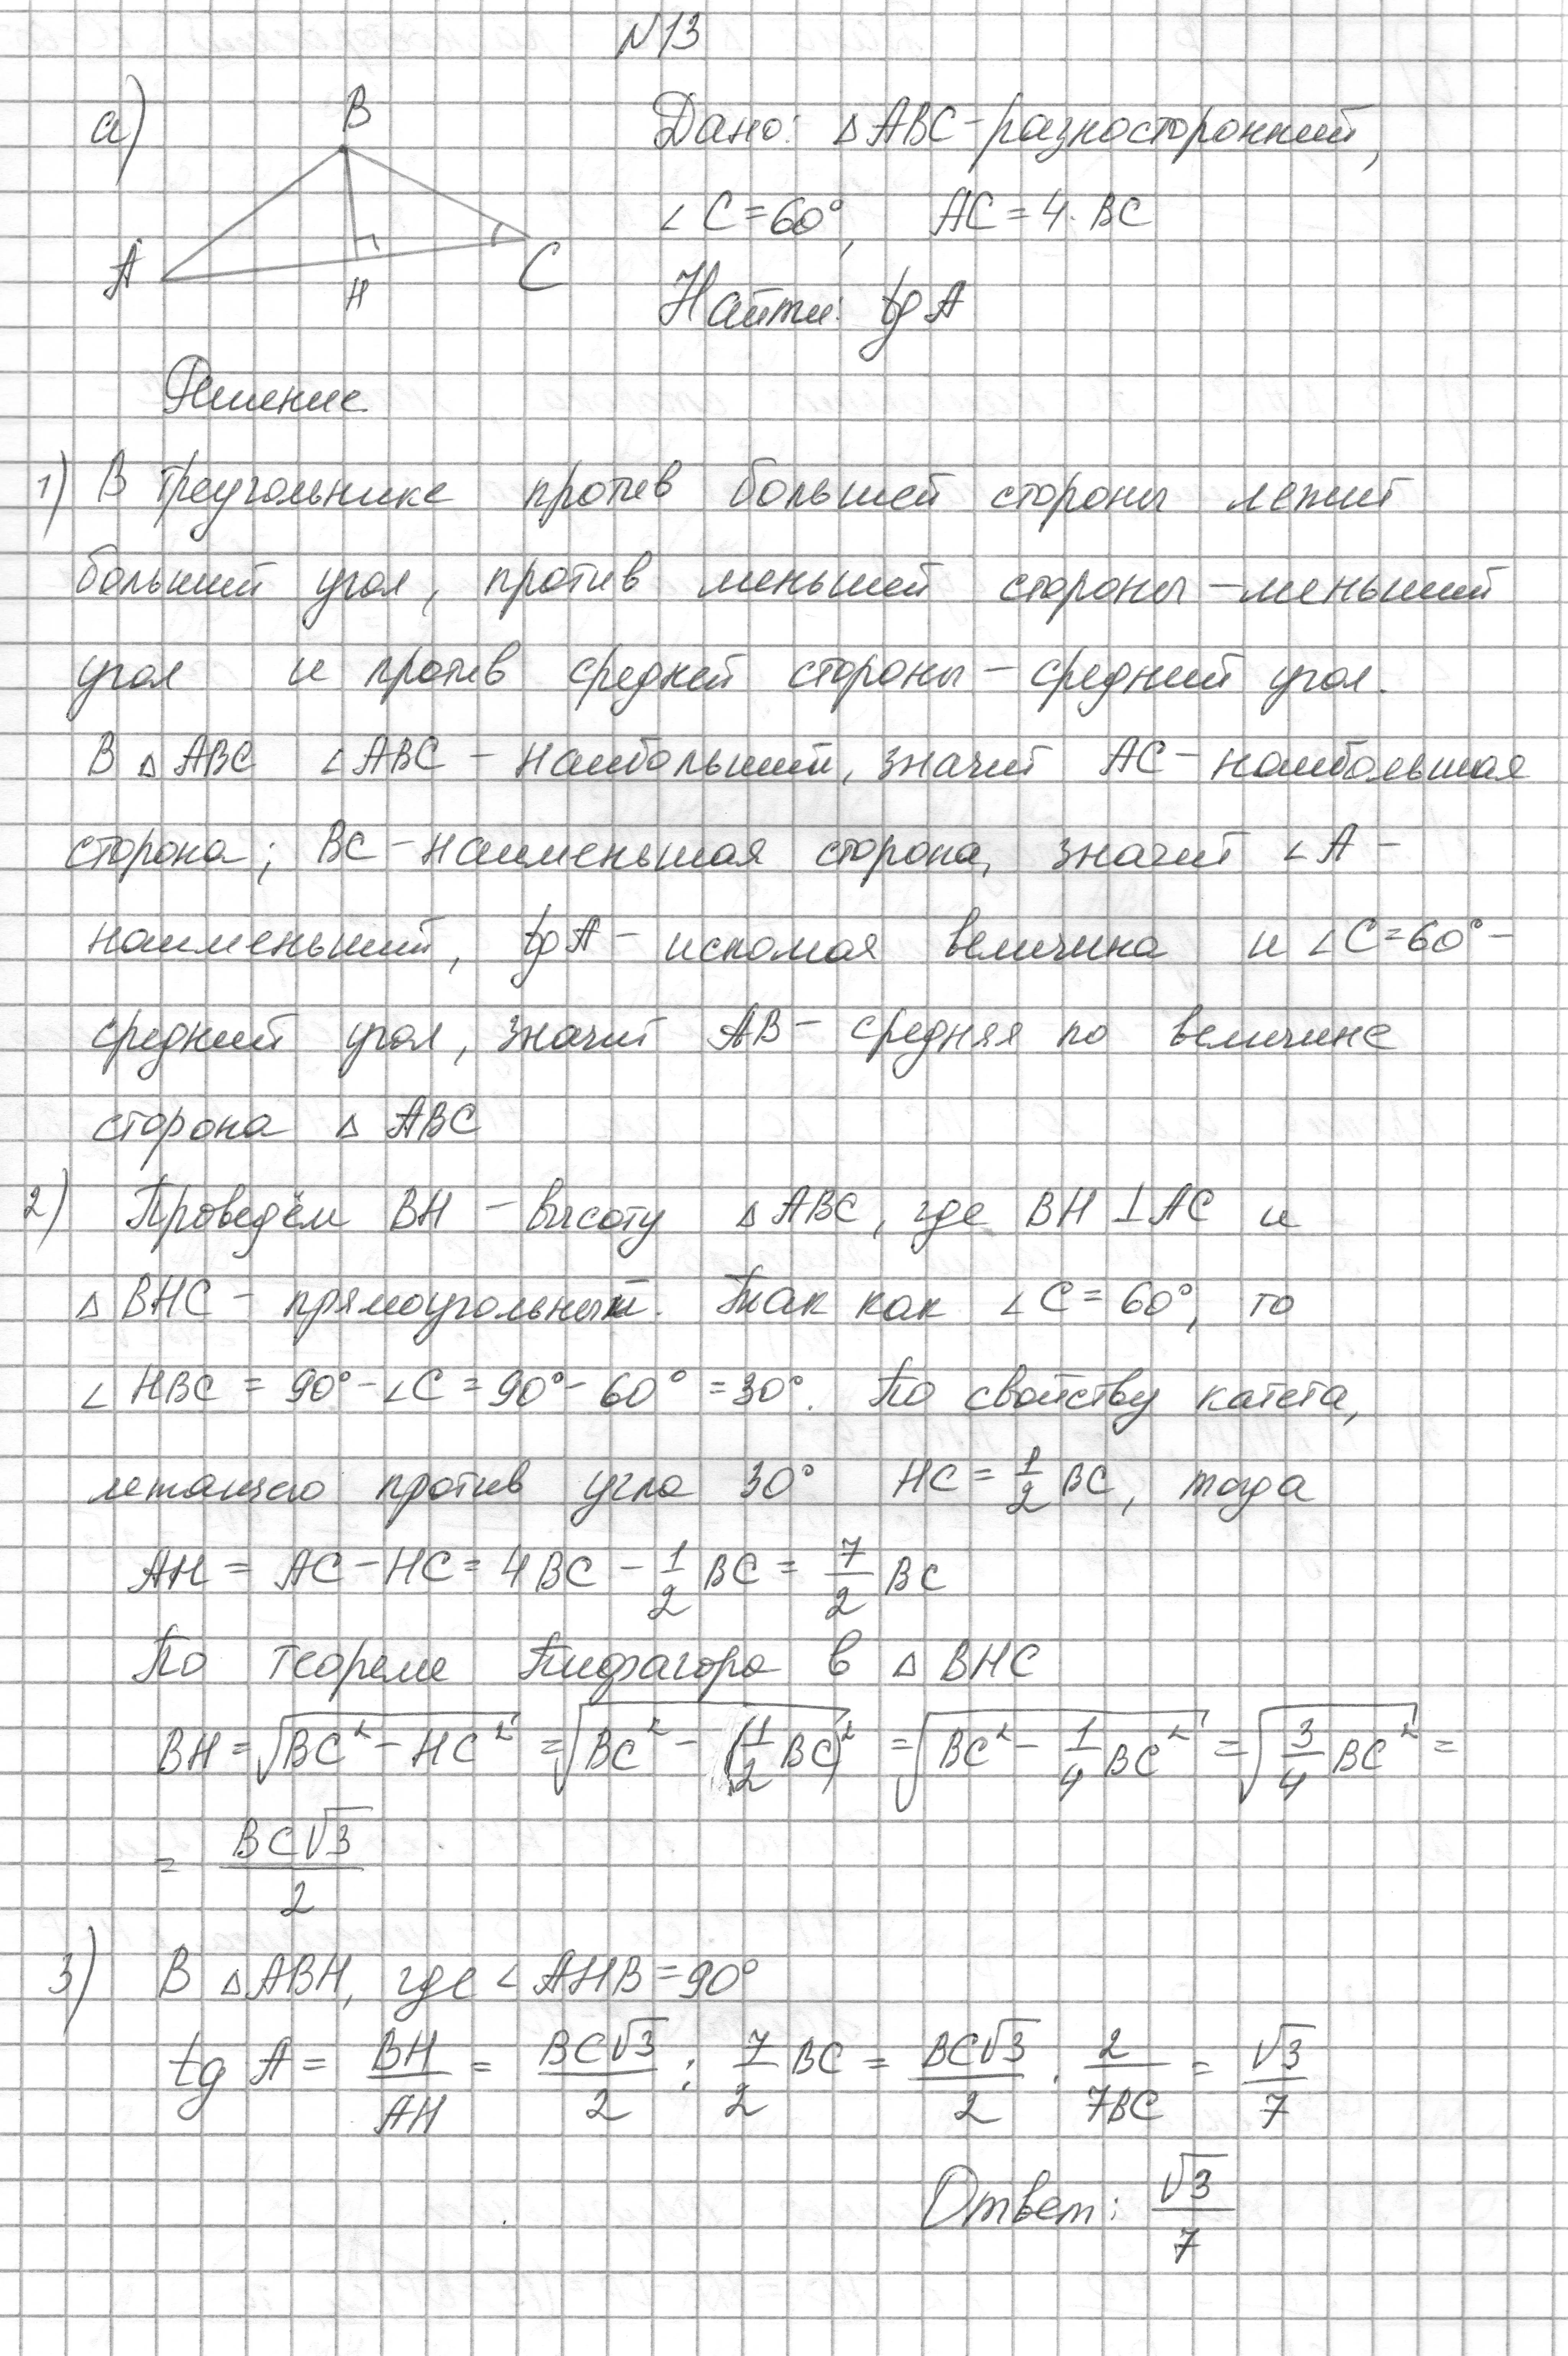 N13
а)
B
A
H
C
Дано: △ABC - разносторонний,
∠C = 60°, AC = 4 · BC
Найти: tg A
Решение
1) В треугольнике против большей стороны лежит
больший угол, против меньшей стороны - меньший
угол и против средней стороны - средний угол.
В △ABC ∠ABC - наибольший, значит AC - наибольшая
сторона; BC - наименьшая сторона, значит ∠A -
наименьший, tg A - искомая величина и ∠C = 60° -
средний угол, значит AB - средняя по величине
сторона △ABC
2) Проведём BH - высоту △ABC, где BH ⊥ AC и
△BHC - прямоугольный. Так как ∠C = 60°, то
∠HBC = 90° - ∠C = 90° - 60° = 30°. По свойству катета,
лежащего против угла 30° HC = 1/2 BC, тогда
AH = AC - HC = 4BC - 1/2 BC = 7/2 BC
По теореме Пифагора в △BHC
BH = √(BC² - HC²) = √(BC² - (1/2 BC)²) = √(BC² - 1/4 BC²) = √(3/4 BC²) =
= BC√3/2
3) В △ABH, где ∠AHB = 90°
tg A = BH/AH = BC√3/2 : 7/2 BC = BC√3/2 · 2/7BC = √3/7
Ответ: √3/7